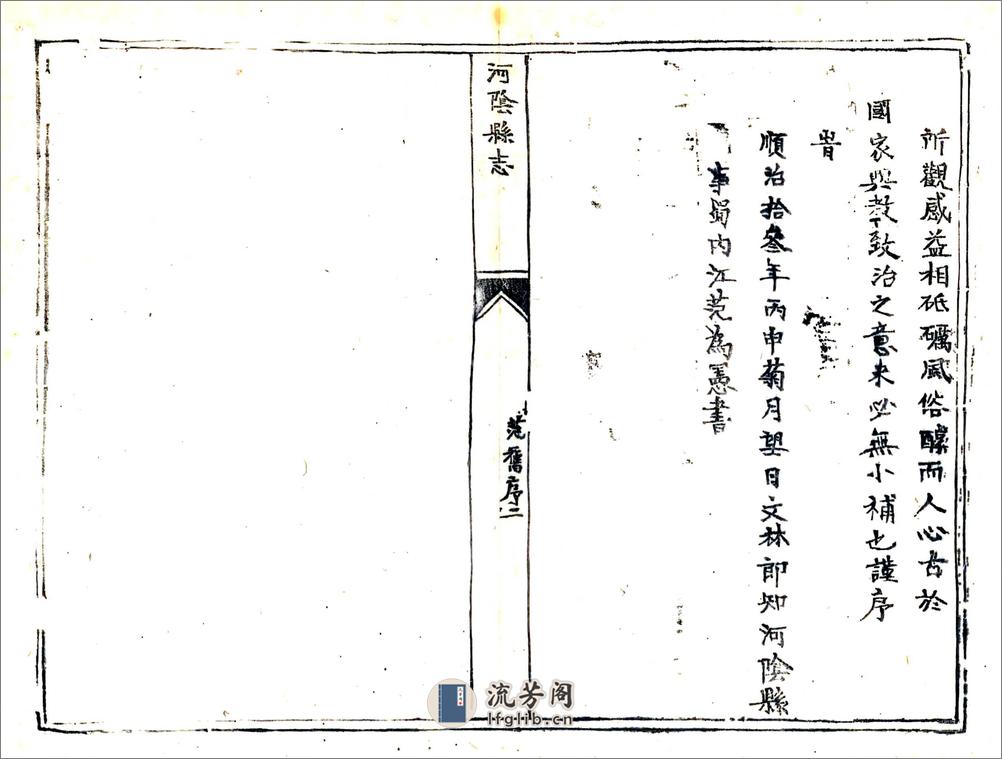 所觀感益相砥礪風俗醇而人心古於
國家興教致治之意未必無小補也謹序
旹
順治拾叄年丙申菊月望日文林郎知河陰縣
事蜀內江范為憲書
河陰縣志
范舊序二
流芳阁
lfglib.cn